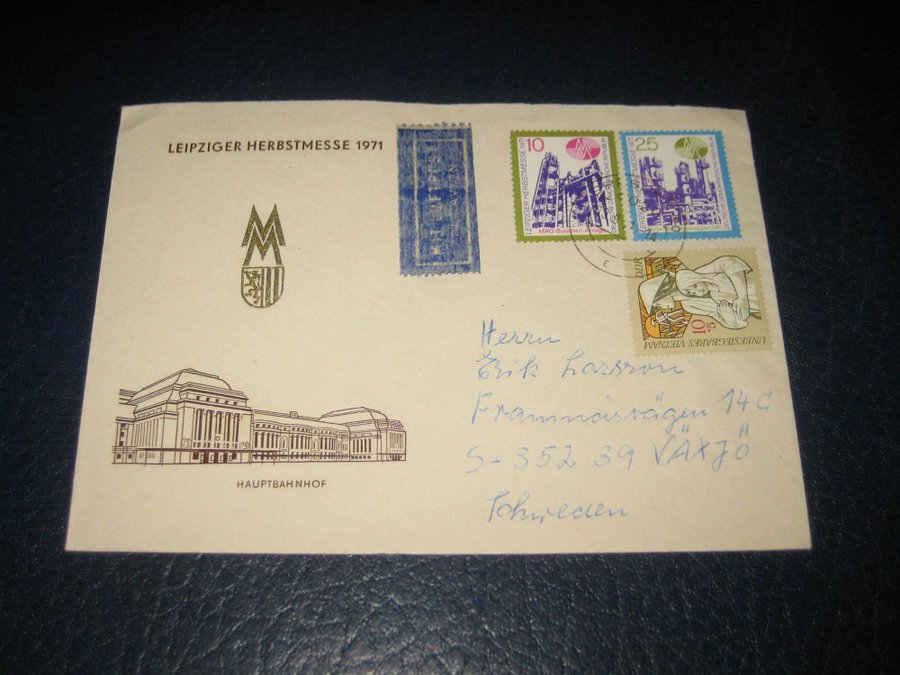 LEIPZIGER HERBSTMESSE 1971
MM
HAUPTBAHNHOF
10
LEIPZIGER HERBSTMESSE 1971
MAG
25
LEIPZIGER HERBSTMESSE 1971
DDR
10+5
UNBESIEGBARES VIETNAM
Herrn
Erik Larsson
Framnäsvägen 14 C
S-352 39 VÄXJÖ
Schweden